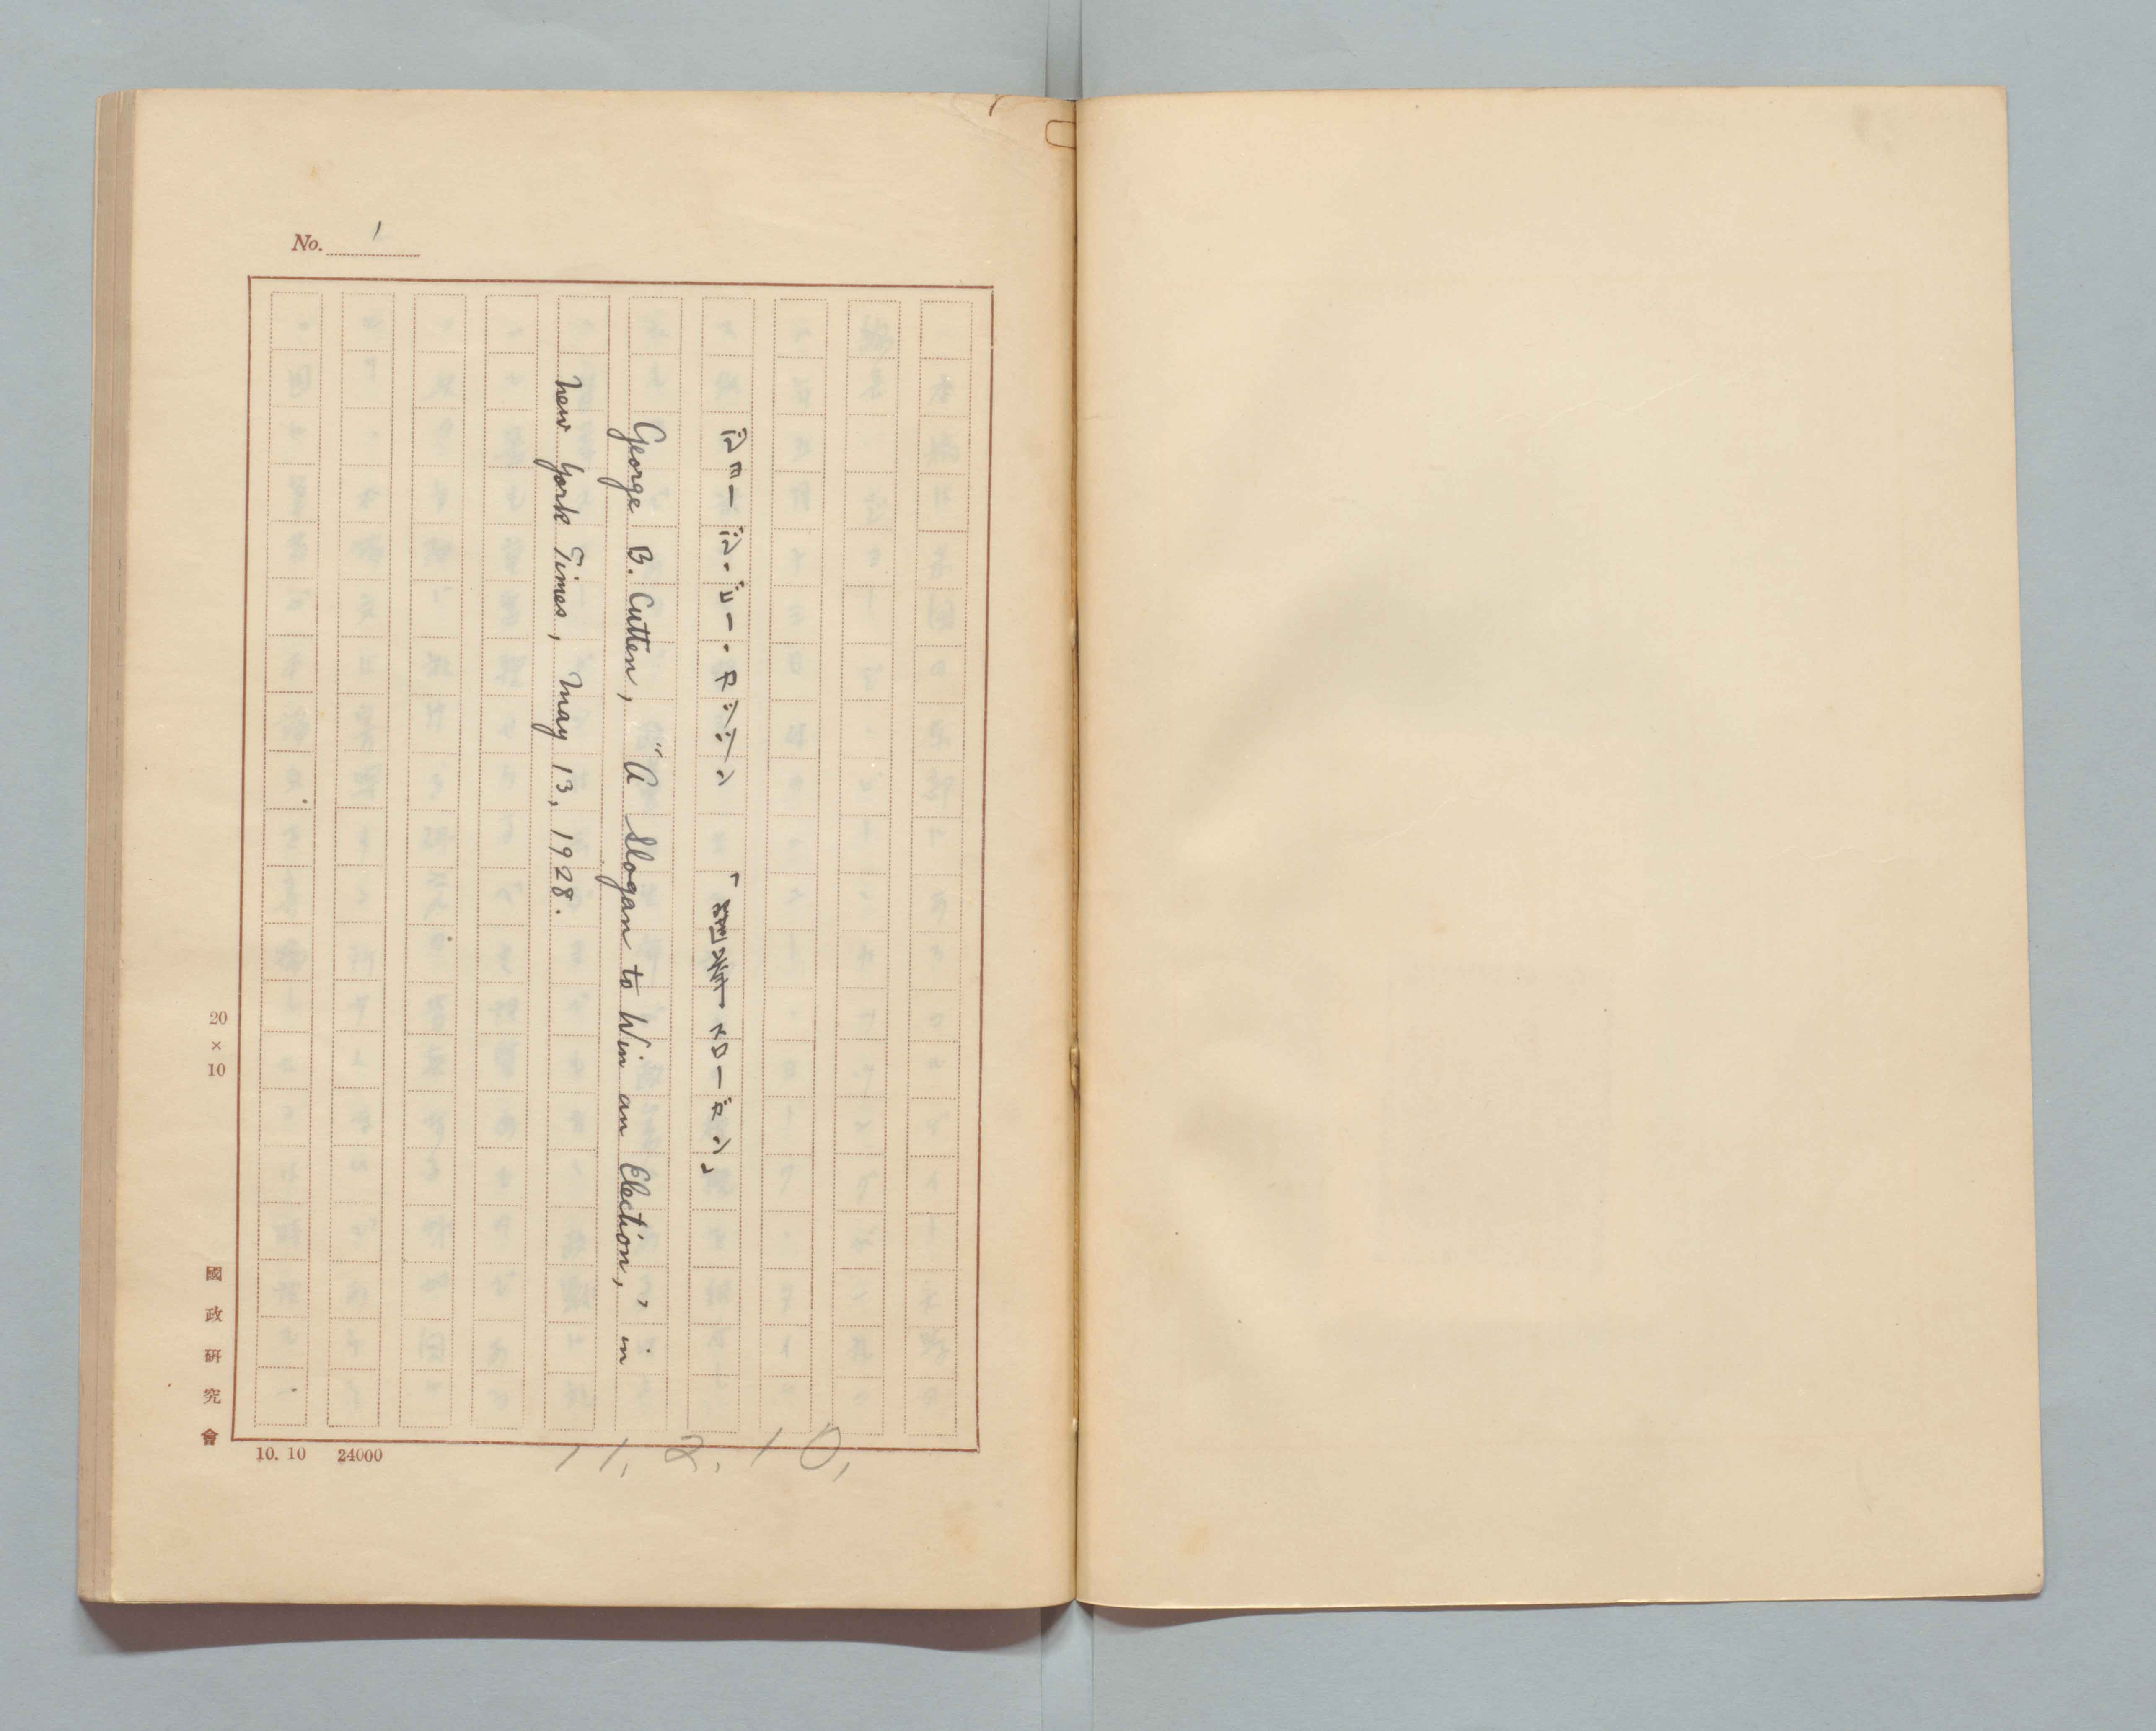 No. 1
ジョージ・ビー・カッツン 「選挙スローガン」
George B. Cutten, "A Slogan to Win an Election," in
New York Times, May 13, 1928.
11.2.10,
20×10
國政研究會
10.10 24000